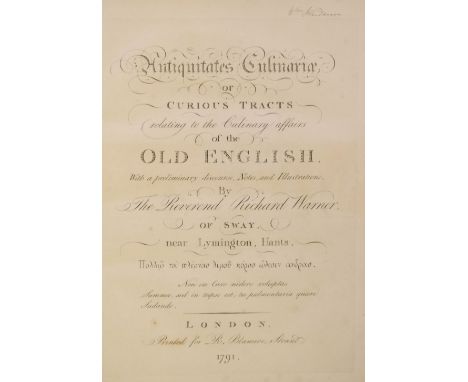 Antiquitates Culinariæ,
or
CURIOUS TRACTS
relating to the Culinary affairs
of the
OLD ENGLISH,
With a preliminary discourse, Notes, and Illustrations,
By
The Reverend Richard Warner,
OF SWAY,
near Lymington, Hants.
Non in Caro nidore voluptas
Summa, sed in teipso est, tu pulmentaria quære
Sudando.
LONDON.
Printed for R. Blamire, Strand
1791.